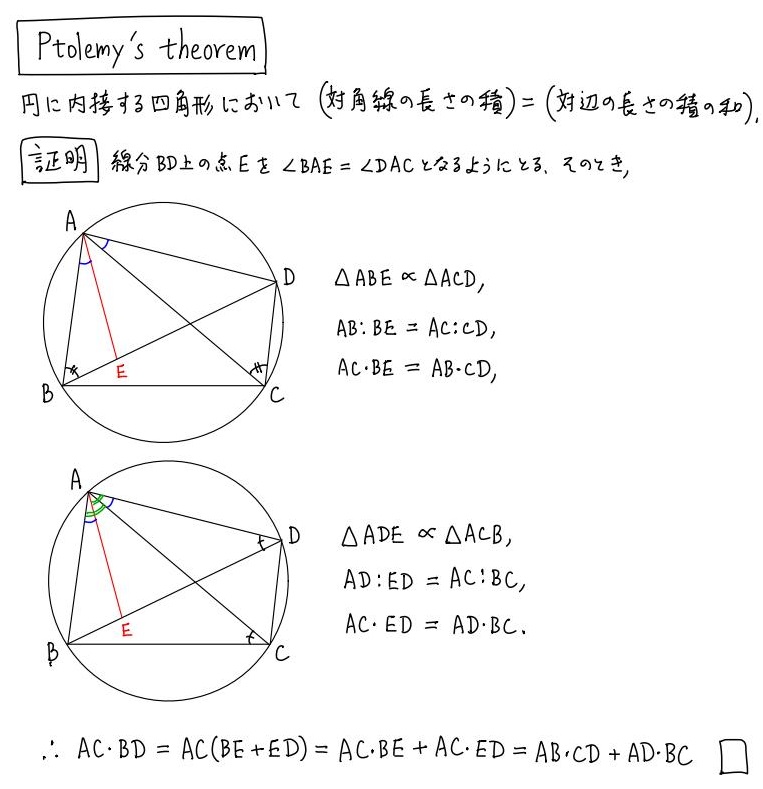 Ptolemy's theorem
円に内接する四角形において (対角線の長さの積) = (対辺の長さの積の和).
証明 線分BD上の点Eを ∠BAE = ∠DACとなるようにとる. そのとき,
A
D
B
E
C
△ABE ∝ △ACD,
AB:BE = AC:CD,
AC·BE = AB·CD,
A
D
B
E
C
△ADE ∝ △ACB,
AD:ED = AC:BC,
AC·ED = AD·BC.
∴ AC·BD = AC(BE+ED) = AC·BE + AC·ED = AB·CD + AD·BC □